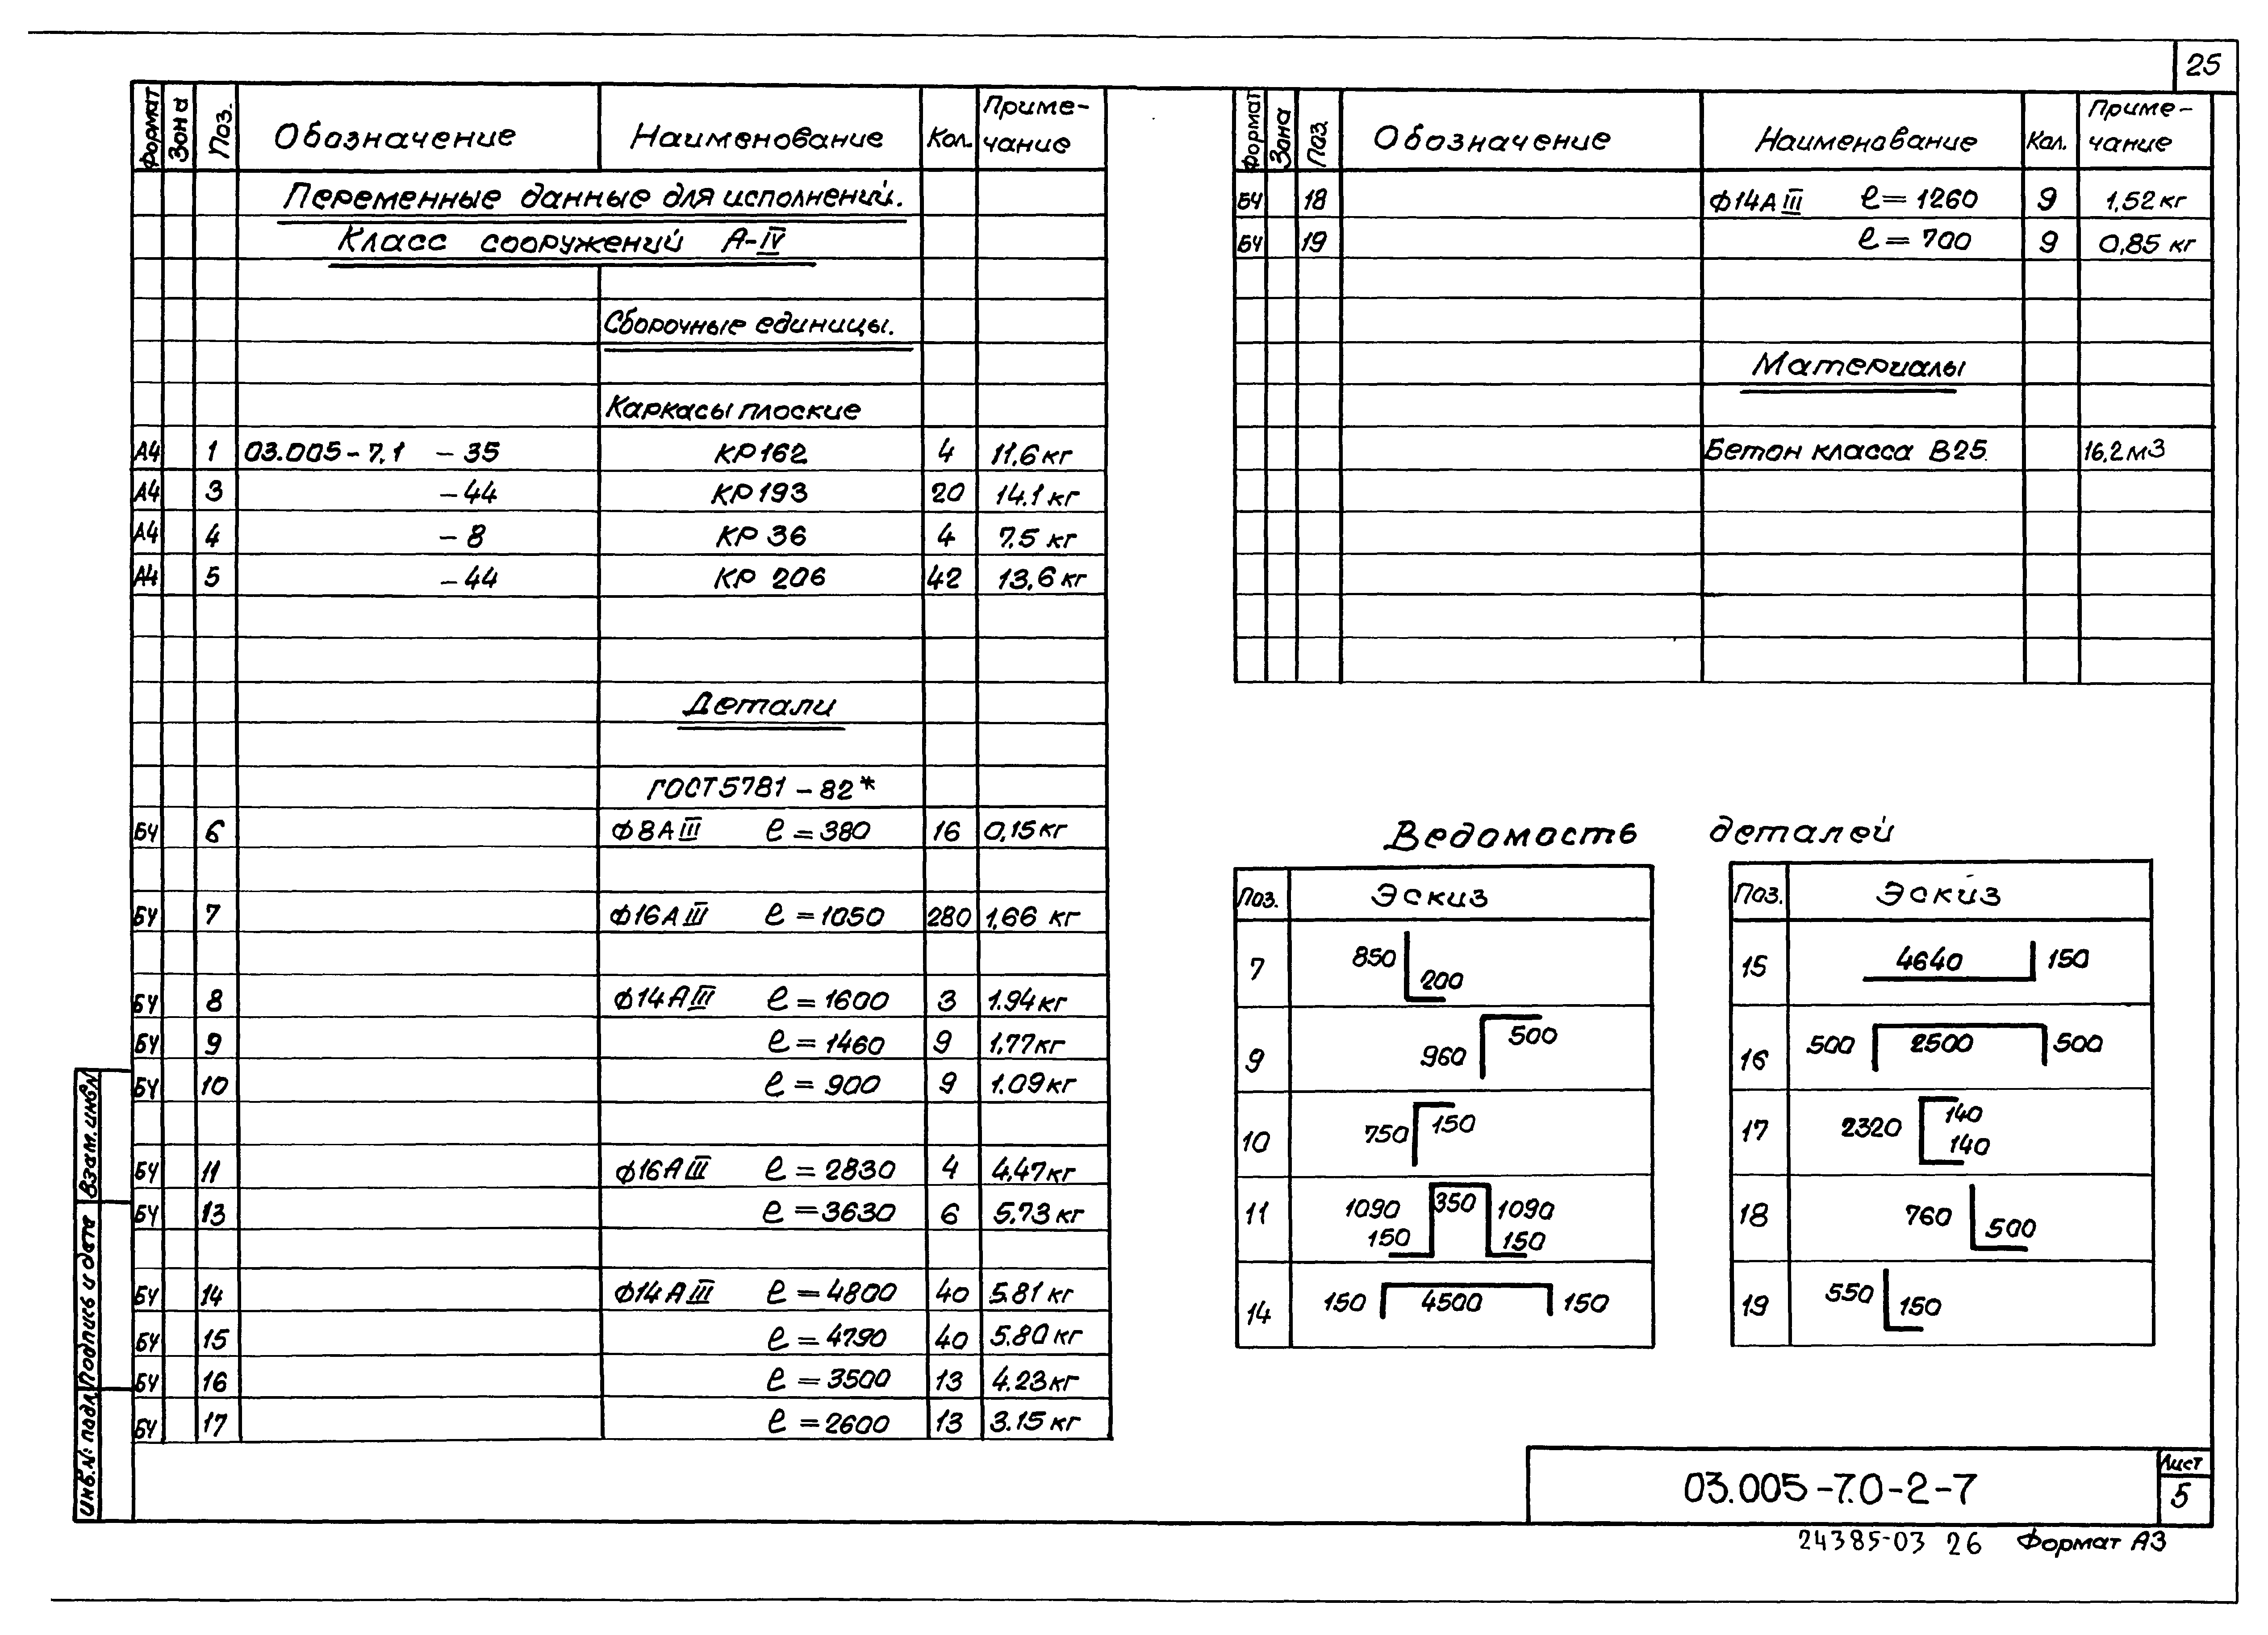 25
Формат Зона Поз. Обозначение Наименование Кол. Приме-
чание
Переменные данные для исполнений.
Класс сооружений А-IV
Сборочные единицы.
Каркасы плоские
А4 1 03.005-7.1 -35 КР162 4 11.6 кг
А4 3 -44 КР193 20 14.1 кг
А4 4 -8 КР 36 4 7.5 кг
А4 5 -44 КР 206 42 13.6 кг
Детали
ГОСТ 5781-82*
БЧ 6 Ф8АIII ℓ=380 16 0,15 кг
БЧ 7 Ф16АIII ℓ=1050 280 1,66 кг
БЧ 8 Ф14АIII ℓ=1600 3 1.94 кг
БЧ 9 ℓ=1460 9 1,77 кг
БЧ 10 ℓ=900 9 1.09 кг
БЧ 11 Ф16АIII ℓ=2830 4 4,47 кг
БЧ 13 ℓ=3630 6 5.73 кг
БЧ 14 Ф14АIII ℓ=4800 40 5.81 кг
БЧ 15 ℓ=4790 40 5.80 кг
БЧ 16 ℓ=3500 13 4.23 кг
БЧ 17 ℓ=2600 13 3.15 кг
Формат Зона Поз. Обозначение Наименование Кол. Приме-
чание
БЧ 18 Ф14АIII ℓ=1260 9 1,52 кг
БЧ 19 ℓ=700 9 0,85 кг
Материалы
Бетон класса В25. 16,2 м3
Ведомость деталей
Поз. Эскиз
7 850 200
9 960 500
10 750 150
11 1090 350 1090
150 150
14 150 4500 150
Поз. Эскиз
15 4640 150
16 500 2500 500
17 2320 140
140
18 760 500
19 550 150
Инв.№ подл. Подпись и дата Взам. инв.№
03.005-7.0-2-7
Лист
5
24385-03 26 Формат А3